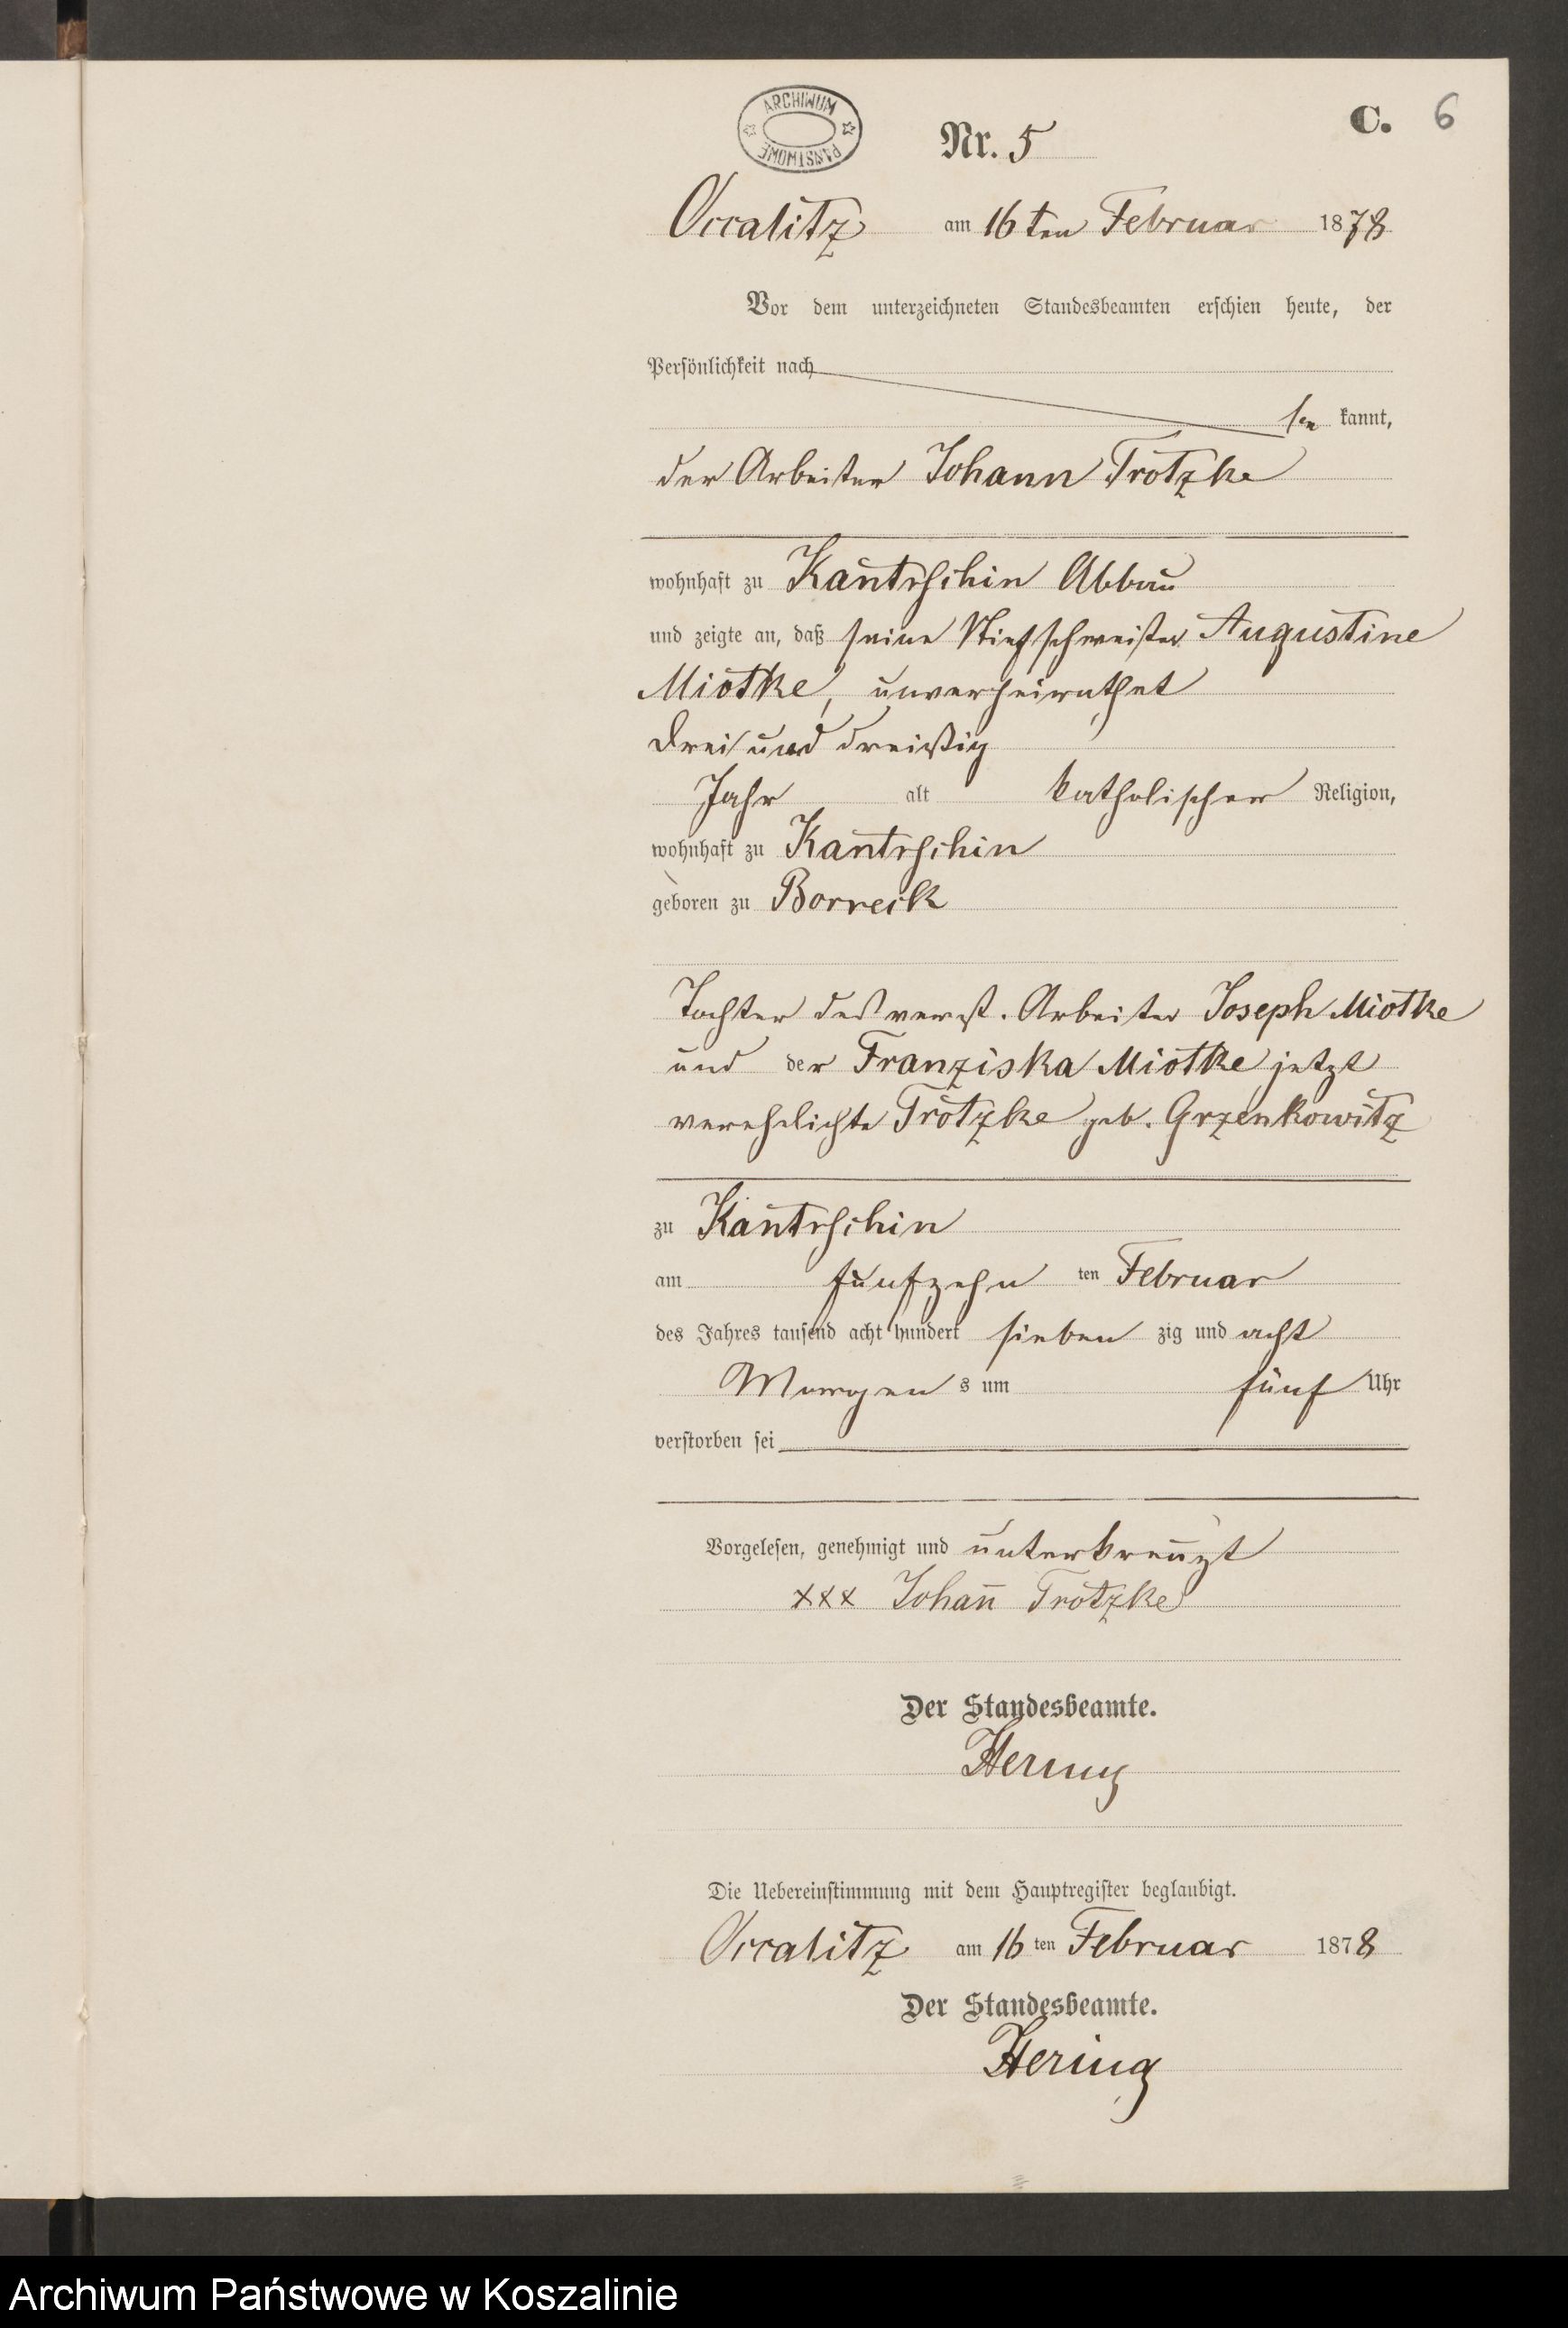 ARCHIWUM PAŃSTWOWE
C. 6
Nr. 5
Occalitz am 16ten Februar 1878
Vor dem unterzeichneten Standesbeamten erschien heute, der
Persönlichkeit nach
be kannt,
der Arbeiter Johann Trotzke
wohnhaft zu Kantrschin Abbau
und zeigte an, daß seine Stiefschweister Augustine
Miotke, unverheirathet
drei und dreißig
Jahr alt katholischer Religion,
wohnhaft zu Kantrschin
geboren zu Borreck
Tochter des verst. Arbeiter Joseph Miotke
und der Franziska Miotke jetzt
verehelichte Trotzke geb. Grzenkowitz
zu Kantrschin
am fünfzehn ten Februar
des Jahres tausend acht hundert sieben zig und acht
Morgen s um fünf Uhr
verstorben sei
Vorgelesen, genehmigt und unterkreuzt
xxx Johan̄ Trotzke
Der Standesbeamte.
Hering
Die Uebereinstimmung mit dem Hauptregister beglaubigt.
Occalitz am 16 ten Februar 1878
Der Standesbeamte.
Hering
Archiwum Państwowe w Koszalinie